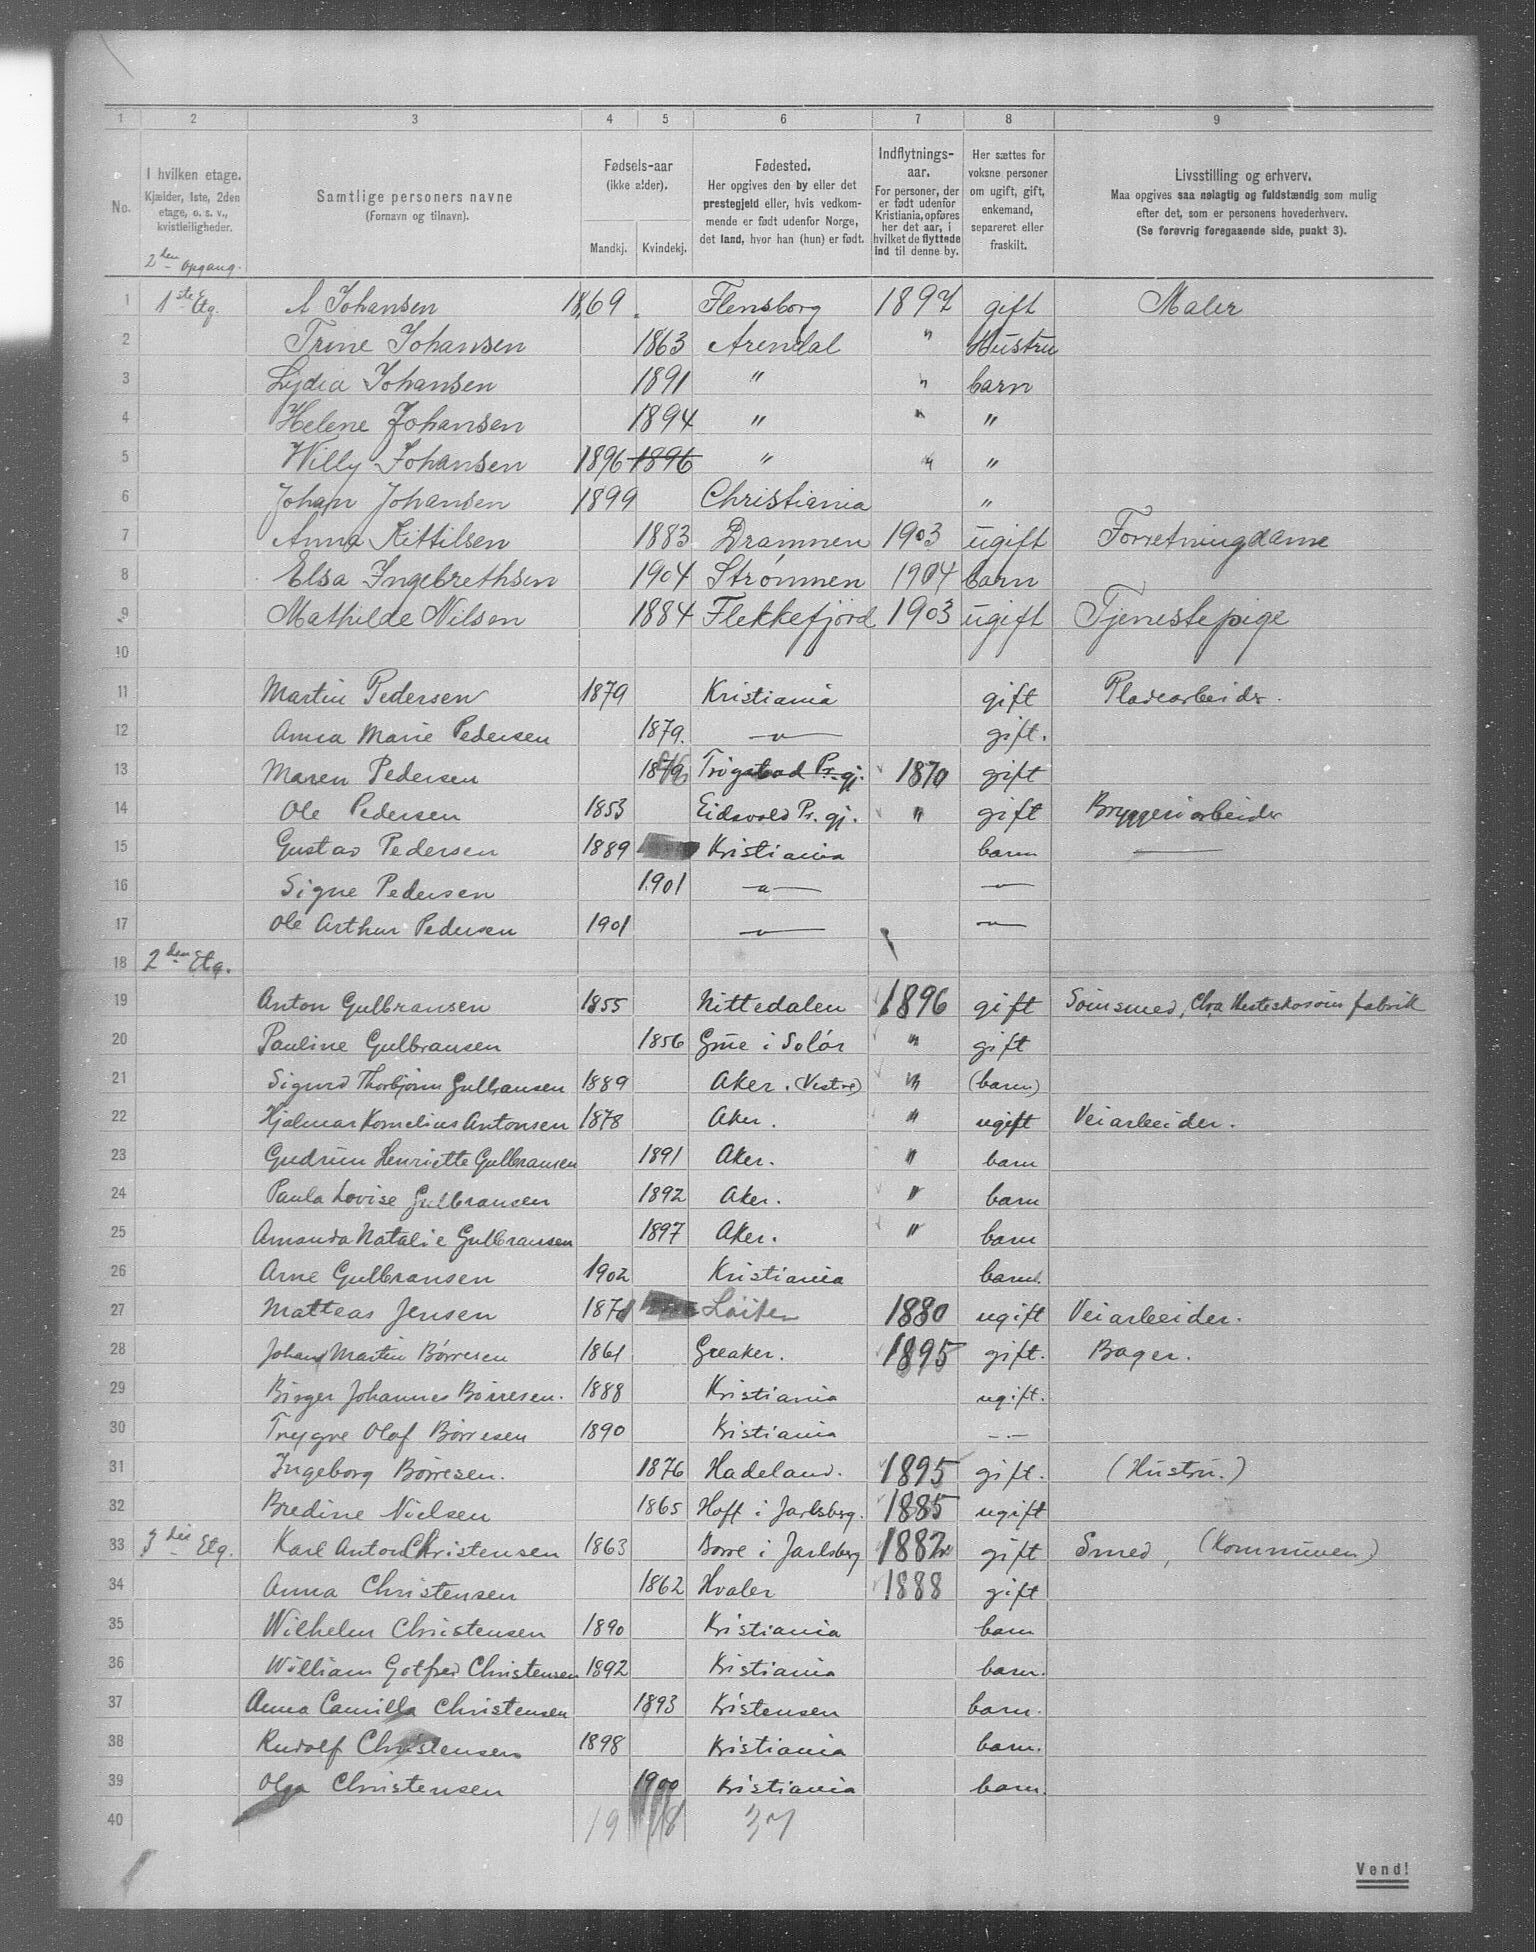 1 2 3 4 5 6 7 8 9
No.
I hvilken etage.
Kjælder, 1ste, 2den
etage, o. s. v.,
kvistleiligheder.
2den opgang.
Samtlige personers navne
(Fornavn og tilnavn).
Fødsels-aar
(ikke alder).
Mandkj. Kvindekj.
Fødested.
Her opgives den by eller det
prestegjeld eller, hvis vedkom-
mende er født udenfor Norge,
det land, hvor han (hun) er født.
Indflytnings-
aar.
For personer, der
er født udenfor
Kristiania, opføres
her det aar, i
hvilket de flyttede
ind til denne by.
Her sættes for
voksne personer
om ugift, gift,
enkemand,
separeret eller
fraskilt.
Livsstilling og erhverv.
Maa opgives saa nøiagtig og fuldstændig som mulig
efter det, som er personens hovederhverv.
(Se forøvrig foregaaende side, punkt 3).
1 1ste Etg. A Johansen 1869 Flensborg 1897 gift Maler
2 Trine Johansen 1863 Arendal " Hustru
3 Lydia Johansen 1891 " " barn
4 Helene Johansen 1894 " " "
5 Willy Johansen 1896 1896 " " "
6 Johan Johansen 1899 Christiania "
7 Anna Kittilsen 1883 Drammen 1903 ugift Forretningdame
8 Elsa Ingebrethsen 1904 Strømmen 1904 barn
9 Mathilde Nilsen 1884 Flekkefjord 1903 ugift Tjenestepige
10
11 Martin Pedersen 1879 Kristiania gift Pladearbeider.
12 Anna Marie Pedersen 1879. — " — gift.
13 Maren Pedersen Trøgstad Pr. gj. 1870 gift
14 Ole Pedersen 1853 Eidsvold Pr. gj. " gift Bryggeriarbeider
15 Gustav Pedersen 1889 Kristiania barn —
16 Signe Pedersen 1901 — " — — " —
17 Ole Arthur Pedersen 1901 — " — — " —
18 2den Etg.
19 Anton Gulbransen 1855 Nittedalen 1896 gift Sømsmed, Chra Hesteskosøm fabrik
20 Pauline Gulbransen 1856 Grue i Solør " gift
21 Sigurd Thorbjørn Gulbransen 1889 Aker. (Vestre) " (barn)
22 Hjalmar Kornelius Antonsen 1878 Aker. " ugift Veiarbeider.
23 Gudrun Henriette Gulbransen 1891 Aker. " barn
24 Paula Lovise Gulbransen 1892 Aker. " barn
25 Amanda Natalie Gulbransen 1897 Aker. " barn
26 Arne Gulbransen 1902 Kristiania barn.
27 Matteas Jensen 1871 Løiten 1880 ugift Veiarbeider.
28 Johan Martin Børresen 1861 Greaker. 1895 gift. Bager.
29 Birger Johannes Børresen. 1888 Kristiania ugift.
30 Trygve Olaf Børresen 1890 Kristiania — —
31 Ingeborg Børresen. 1876 Hadeland. 1895 gift. (Hustru.)
32 Bredine Nielsen 1865 Hoff i Jarlsberg. 1885 ugift
33 3die Etg. Karl Anton Christensen 1863 Borre i Jarlsberg 1882 gift Smed, (Kommunen)
34 Anna Christensen 1862 Hvaler 1888 gift
35 Wilhelm Christensen 1890 Kristiania barn
36 William Gotfred Christensen 1892 Kristiania barn.
37 Anna Camilla Christensen 1893 Kristensen barn.
38 Rudolf Christensen 1898 Kristiania barn.
39 Olga Christensen 1900 Kristiania barn.
40 19 18 37
Vend!